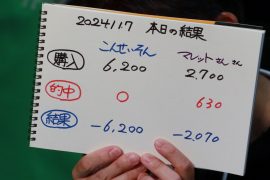 2024.1.17 本日の結果
こんせいそん マレットさん さん
購入 6,200 2,700
的中 0 630
結果 -6,200 -2070